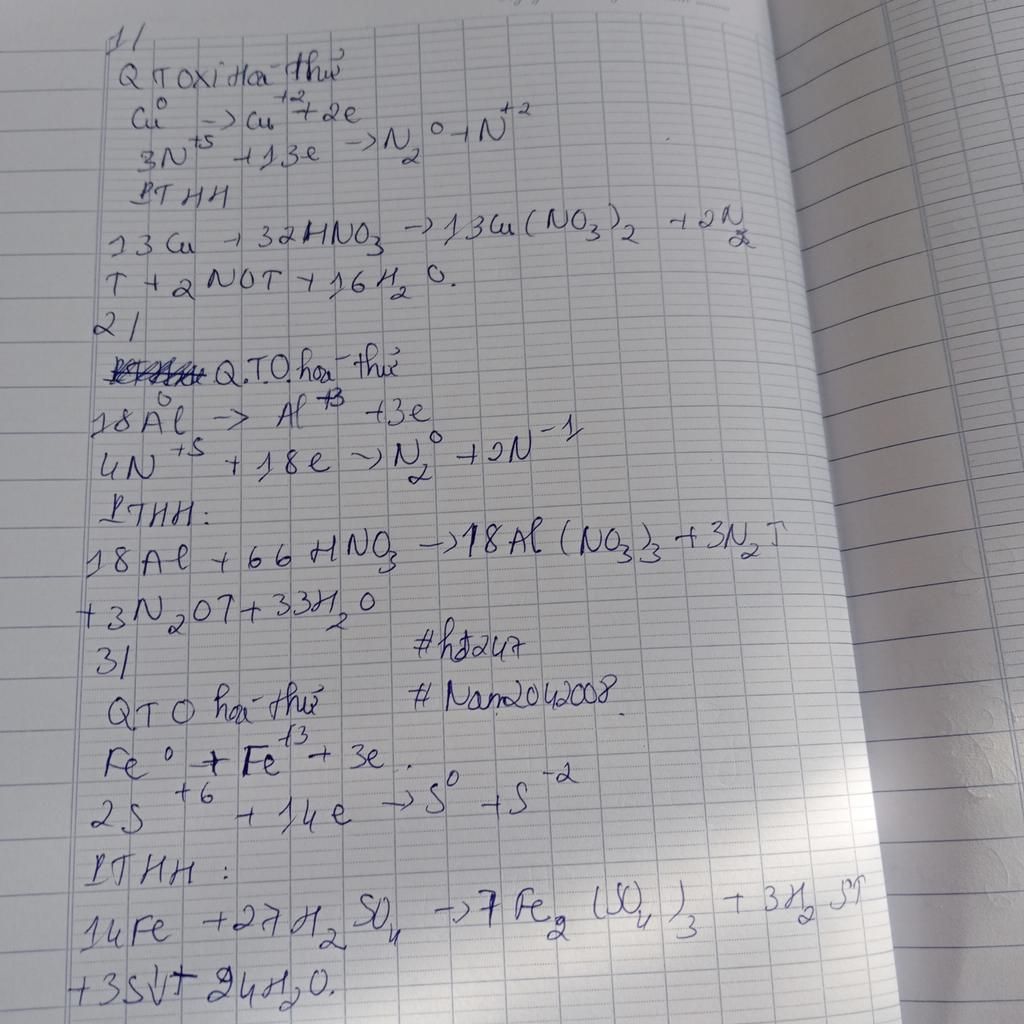 1/
QT oxi hoá-thử
Cu⁰ → Cu⁺² + 2e
3N⁺⁵ + 13e → N₂⁰ + N⁺²
PTHH
13Cu + 32HNO₃ → 13Cu(NO₃)₂ + 2N₂
↑ + 2NO↑ + 16H₂O.
2/
Q.T.O.hoá-thử
18Al⁰ → Al⁺³ + 3e
4N⁺⁵ + 18e → N₂⁰ + 2N⁻¹
PTHH:
18Al + 66HNO₃ → 18Al(NO₃)₃ + 3N₂↑
+ 3N₂O↑ + 33H₂O
3/ #hd247
QT O hoá-thử #Nam2042008.
Fe⁰ + Fe⁺³ + 3e.
2S⁺⁶ + 14e → S⁰ + S⁻²
PTHH:
14Fe + 27H₂SO₄ → 7Fe₂(SO₄)₃ + 3H₂S↑
+ 3S↓ + 24H₂O.